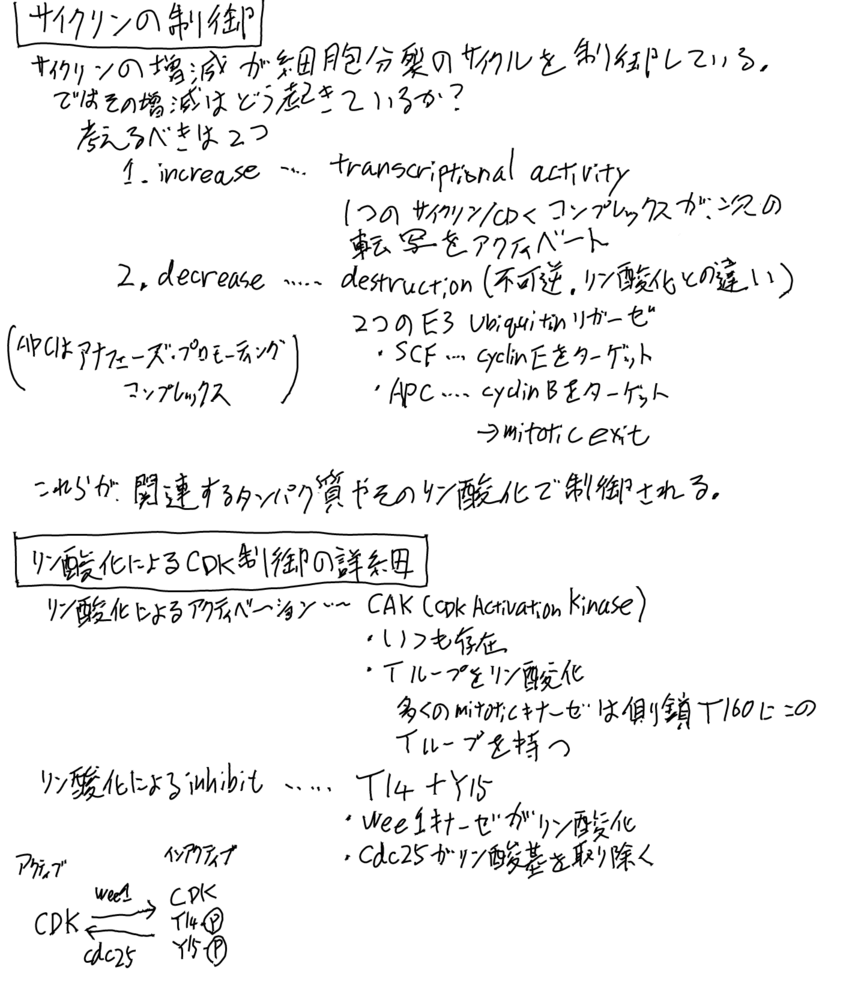 サイクリンの制御
サイクリンの増減が細胞分裂のサイクルを制御している。
ではその増減はどう起きているか?
考えるべきは2つ
1. increase … transcriptional activity
1つのサイクリン/CDKコンプレックスが、次の
転写をアクティベート
2. decrease ..... destruction (不可逆。リン酸化との違い)
2つのE3 Ubiquitinリガーゼ
・SCF … cyclin Eをターゲット
・APC .... cyclin Bをターゲット
→mitotic exit
(APCはアナフェーズ・プロモーティング
コンプレックス)
これらが、関連するタンパク質やそのリン酸化で制御される。
リン酸化によるCDK制御の詳細
リン酸化によるアクティベーション … CAK (CDK Activation Kinase)
・いつも存在
・Tループをリン酸化
多くのmitoticキナーゼは側鎖T160にこの
Tループを持つ
リン酸化によるinhibit ..... T14+Y15
・wee1キナーゼがリン酸化
・Cdc25がリン酸基を取り除く
アクティブ インアクティブ
wee1 CDK
CDK T14-P
cdc25 Y15-P